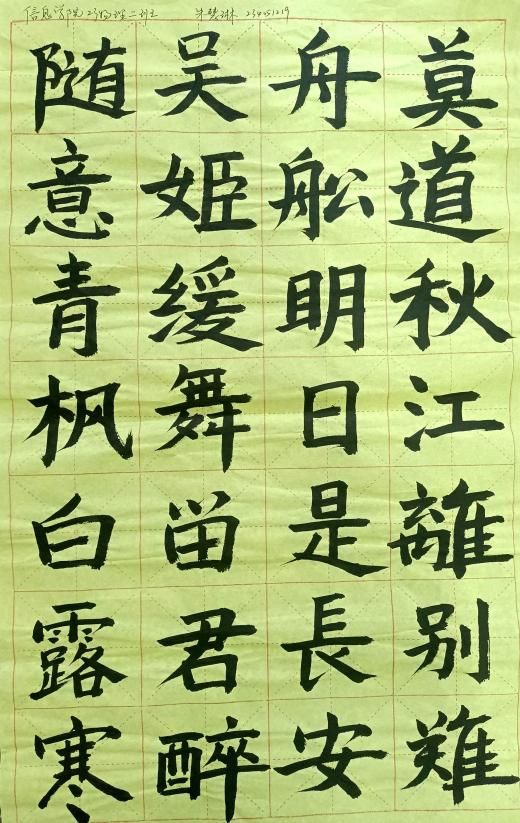 信息学院23物理二班 朱慧琳 234051219
莫道秋江離别難
舟舩明日是長安
吴姬缓舞留君醉
随意青枫白露寒